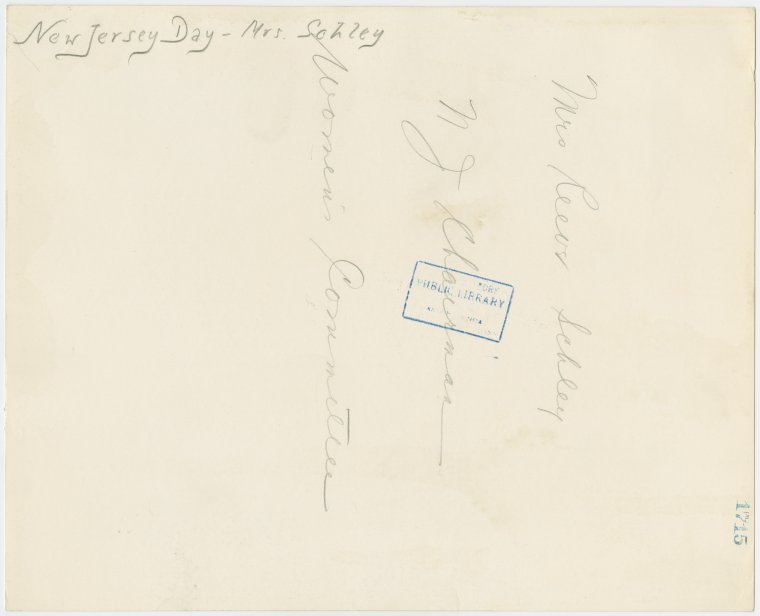 New Jersey Day - Mrs. Schley
Mrs Reeve Schley
N J Chairman
Women's Committee
YORK
PUBLIC LIBRARY
1715